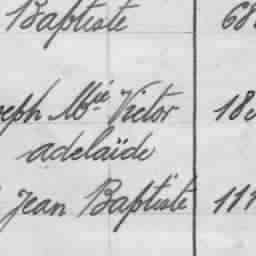 Baptiste 68
eph Mie Victor 18
adelaïde
Jean Baptiste 111